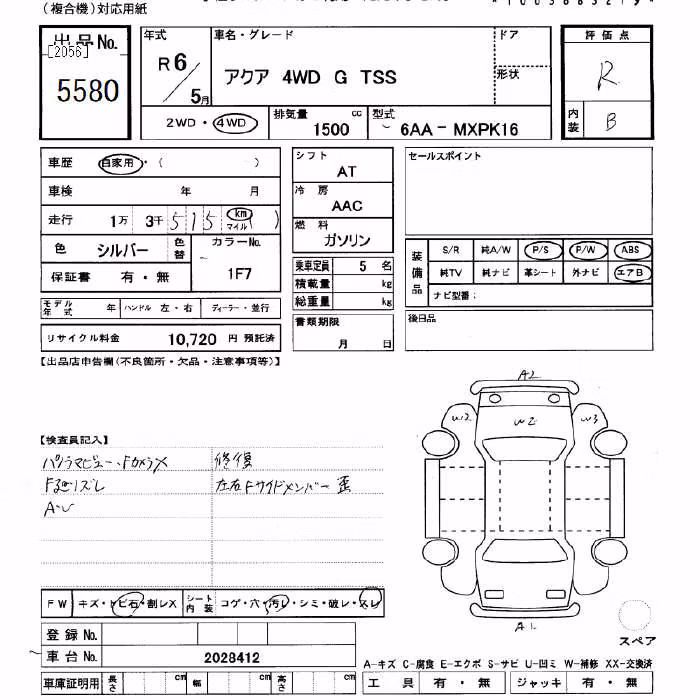 (複合機)対応用紙
*1003663219*
出品No.
[2056]
5580
年式
R6/5月
車名・グレード
アクア 4WD G TSS
ドア
形状
評価点
R
内装
B
2WD・4WD
排気量
1500 cc
型式
6AA-MXPK16
車歴 自家用・( )
車検 年 月
走行 1万 3千 515 km マイル ( )
色 シルバー 色替
カラーNo.
1F7
保証書 有・無
モデル年式 年 ハンドル 左・右 ディーラー・並行
リサイクル料金 10,720 円 預託済
シフト
AT
冷房
AAC
燃料
ガソリン
乗車定員 5 名
積載量 kg
総重量 kg
書類期限
月 日
セールスポイント
装備品
S/R 純A/W P/S P/W ABS
純TV 純ナビ 革シート 外ナビ エアB
ナビ型番:
後日品
【出品店申告欄(不良箇所・欠品・注意事項等)】
【検査員記入】
パノラマビュー・FカメラX
修復
左右Fサイドメンバー歪
A2
W2
W2
W3
A1
スペア
FW キズ・トビ石・割レX シート内装 コゲ・穴・汚レ・シミ・破レ・スレ
登録No.
車台No. 2028412
車庫証明用 長さ cm 幅 cm 高さ cm
A-キズ C-腐食 E-エクボ S-サビ U-凹ミ W-補修 XX-交換済
工具 有・無 ジャッキ 有・無